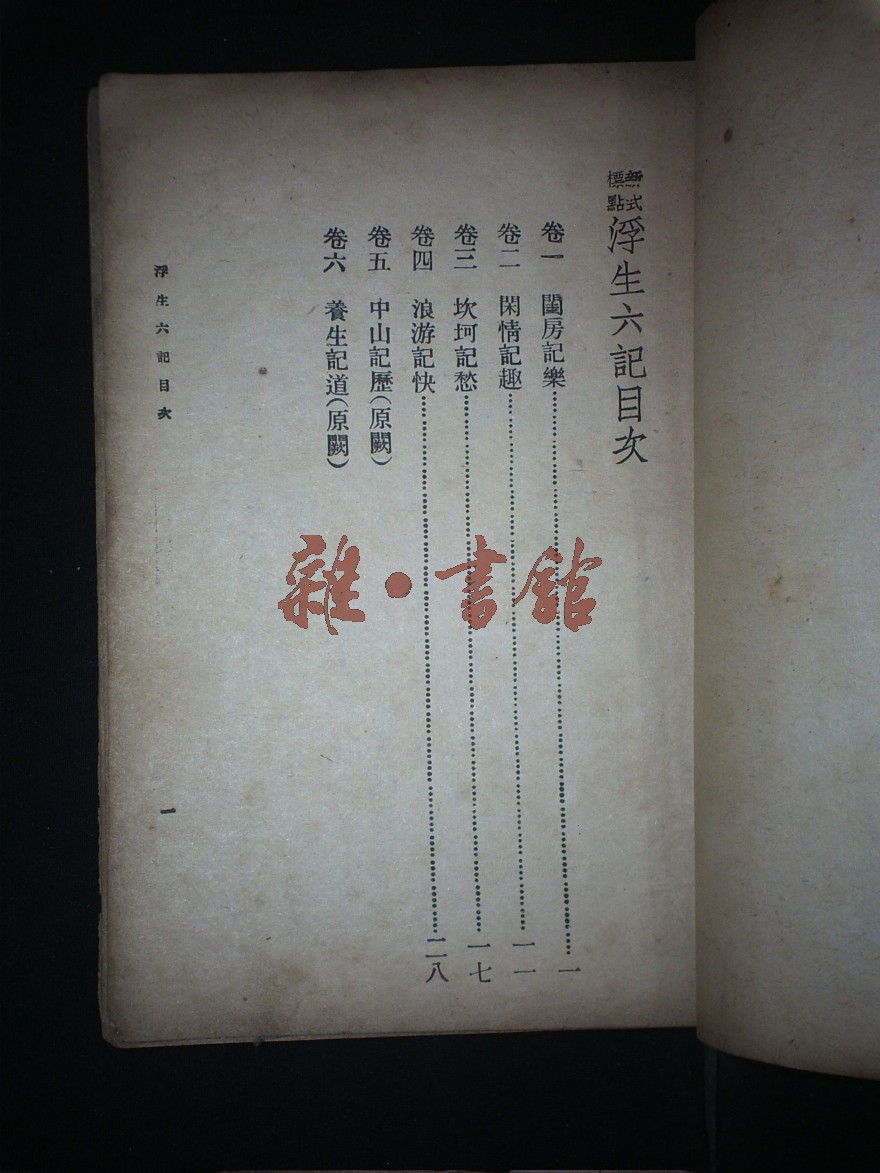 新式標點 浮生六記目次
卷一 閨房記樂……一
卷二 閑情記趣……一一
卷三 坎坷記愁……一七
卷四 浪游記快……二八
卷五 中山記歷(原闕)
卷六 養生記道(原闕)
浮生六記目次
一
雜·書館